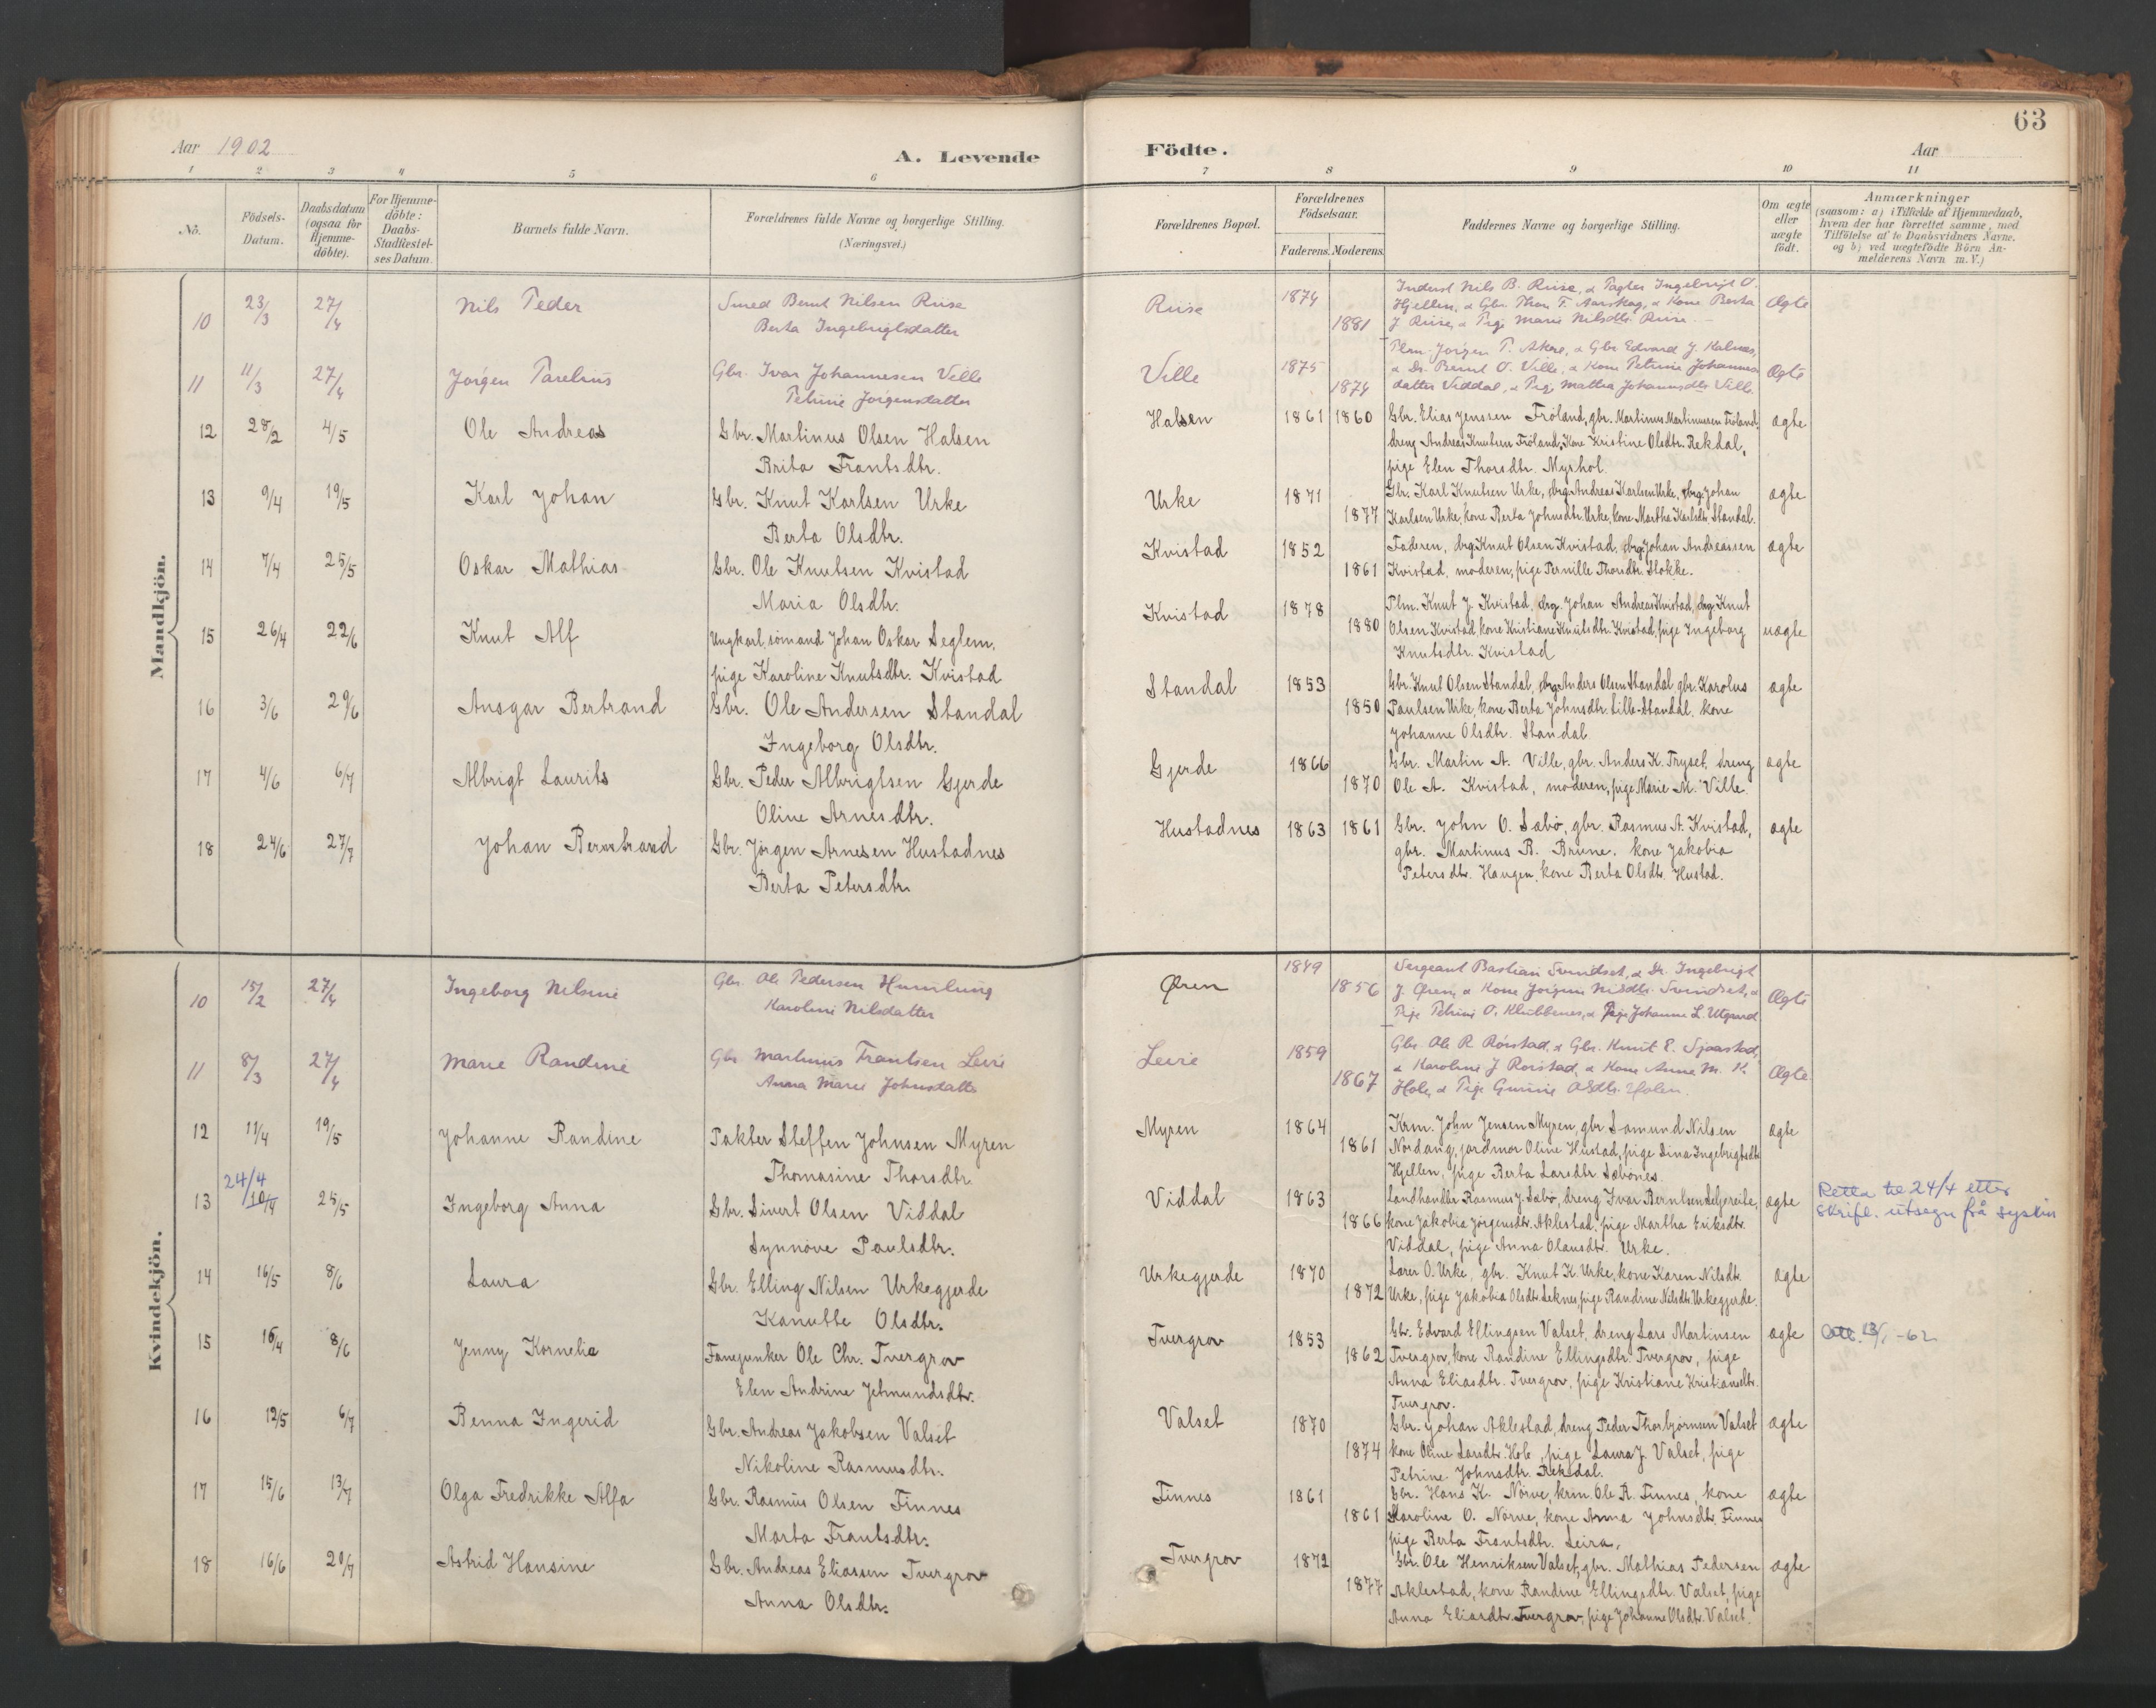 63
Aar 1902
A. Levende Födte.
Aar
1 2 3 4 5 6 7 8 9 10 11
No.
Födsels-Datum.
Daabsdatum (ogsaa for Hjemme-döbte).
For Hjemme-döbte: Daabs-Stadfæstel-ses Datum.
Barnets fulde Navn.
Forældrenes fulde Navne og borgerlige Stilling. (Næringsvei.)
Forældrenes Bopæl.
Forældrenes Födselsaar.
Faderens. Moderens.
Faddernes Navne og borgerlige Stilling.
Om ægte eller uægte födt.
Anmærkninger
(saasom: a) i Tilfælde af Hjemmedaab, hvem der har forrettet samme, med Tilföielse af to Daabsvidners Navne. og b) ved uægtefödte Börn Anmelderens Navn m. V.)
Mandkjön.
10 23/3 27/4 Nils Peder Smed Bernt Nilsen Riise Riise 1874 Inderst Nils B. Riise, & Pagter Ingebrigt O. Ægte
Berta Ingebrigtsdatter 1881 Hjellen, & Gbr. Thor T. Aarskog, & Kone Berta
J Riise, & Pige Marie Nilsdtr. Riise.
11 11/3 27/4 Jørgen Parelius Gbr. Ivar Johannesen Ville Ville 1875 Plm. Jørgen P. Akre, & Gbr Edvard J. Kalnes, Ægte
Petrine Jørgensdatter 1874 & Dr. Bernt O. Ville, & Kone Petrine Johannes
datter Viddal, & Pige Mathea Johannsdtr Ville.
12 28/2 4/5 Ole Andreas Gbr. Martinus Olsen Halsen Halsen 1861 1860 Gbr. Elias Jenssen Fröland, gbr. Martinus Martinussen Fröland, ægte
Brita Frantsdtr. dreng Andreas Knutsen Fröland, Kone Kristine Olsdtr. Rekdal,
pige Elen Thorsdtr. Myrhol.
13 9/4 19/5 Karl Johan Gbr. Knut Karlsen Urke Urke 1871 Gbr. Karl Knutsen Urke, drg. Andreas Karlsen Urke, drg. Johan ægte
Berta Olsdtr. 1877 Karlsen Urke, kone Berta Johnsdtr. Urke, kone Martha Karlsdtr. Standal.
14 7/4 25/5 Oskar Mathias Gbr. Ole Knutsen Kvistad Kvistad 1852 Faderen, drg. Knut Olsen Kvistad, drg. Johan Andreassen ægte
Maria Olsdtr. 1861 Kvistad, moderen, pige Pernille Thorsdtr. Stokke.
15 26/4 22/6 Knut Alf Ungkarl, sömand Johan Oskar Seglem, Kvistad 1878 Plm. Knut J. Kvistad, drg. Johan Andreas Kvistad, drg. Knut uægte
pige Karoline Knutsdtr. Kvistad 1880 Olsen Kvistad, kone Kristiane Knutsdtr. Kvistad, pige Ingeborg
Knutsdtr. Kvistad
16 3/6 29/6 Ansgar Bertrand Gbr. Ole Andersen Standal Standal 1853 Gbr. Knut Olsen Standal, drg. Anders Olsen Standal, gbr. Karolus ægte
Ingeborg Olsdtr. 1850 Paulsen Urke, kone Berta Johnsdtr. Lille-Standal, kone
Johanne Olsdtr. Standal
17 4/6 6/7 Albrigt Laurits Gbr. Peder Albrigtsen Gjerde Gjerde 1866 Gbr. Martin A. Ville, gbr. Anders K. Tryset, dreng ægte
Oline Arnesdtr. 1870 Ole A. Kvistad, moderen, pige Marie M. Ville.
18 24/6 27/7 Johan Berntrand Gbr. Jörgen Arnesen Hustadnes Hustadnes 1863 1861 Gbr. John O. Sæbö, gbr. Rasmus A. Kvistad, ægte
Berta Petersdtr. gbr. Martinus B. Brune, kone Jakobia
Petersdtr. Haugen, kone Berta Olsdtr. Hustad.
Kvindekjön.
10 15/2 27/4 Ingeborg Nilsine Gbr. Ole Pedersen Humlung Øren 1849 Sergeant Bastian Svendset, & Dr. Ingebrigt Ægte
Karoline Nilsdatter 1856 J. Øren, & Kone Jørgine Nilsdtr. Svendset, &
Pige Petrine O. Klubbenes, & Pige Johanne L. Utgaard
11 8/3 27/4 Marie Randine Gbr Martinus Frantsen Leire Leire 1859 Gbr Ole R. Rørstad, & Gbr. Knut E. Sjaastad, Ægte
Anna Marie Johnsdatter 1867 & Karoline J Rørstad, & Kone Anne M. K.
Hole, & Pige Gurine A Sdtr. Holen.
12 11/4 19/5 Johanne Randine Pakter Steffen Johnsen Myren Myren 1864 Krm. John Jensen Myren, gbr. Samund Nilsen ægte
Thomasine Thorsdtr. 1861 Nordang, jordmor Oline Hustad, pige Lina Ingebrigtsdtr.
Hjellen, pige Berta Larsdtr. Sæbönes.
24/4
13 10/4 25/5 Ingeborg Anna Gbr. Sivert Olsen Viddal Viddal 1863 Landhandler Rasmus J. Sæbö, dreng Ivar Berntsen Lefsreite, ægte Retta til 24/4 etter
Synnöve Paulsdtr. 1866 kone Jakobia Jörgensdtr. Aklestad, pige Martha Eriksdtr. skrifl. utsegn frå syskin
Viddal, pige Anna Olausdtr. Urke.
14 16/5 8/6 Laura Gbr. Elling Nilsen Urkegjerde Urkegjerde 1870 Lærer O. Urke, gbr. Knut K. Urke, kone Karen Nilsdtr. ægte
Kanutte Olsdtr. 1872 Urke, pige Jakobia Olsdtr. Leknes, pige Randine Nilsdtr. Urkegjerde.
15 16/4 8/6 Jenny Kornelia Fanejunker Ole Chr. Tvergrov Tvergrov 1853 Gbr. Edvard Ellingsen Valset, dreng Lars Martinsen ægte Att. 13/1 -62
Elen Andrine Jetmundsdtr. 1862 Tvergrov, kone Randine Ellingsdtr. Tvergrov, pige
Anna Eliasdtr. Tvergrov, pige Kristiane Kristiansdtr.
Tvergrov.
16 12/5 6/7 Benna Ingerid Gbr. Andreas Jakobsen Valset Valset 1870 Gbr. Johan Aklestad, dreng Peder Thorbjörnsen Valset ægte
Nikoline Rasmusdtr. 1874 kone Oline Larsdtr. Hole, pige Laura J. Valset, pige
Petrine Johnsdtr. Rekdal.
17 15/6 13/7 Olga Fredrikke Alfa Gbr. Rasmus Olsen Finnes Finnes 1861 Gbr. Hans K. Nörve, krm. Ole R. Finnes, kone ægte
Marta Frantsdtr. 1861 Karoline O. Nörve, kone Anna Johnsdtr. Finnes
pige Berta Frantsdtr. Leira.
18 16/6 20/7 Astrid Hansine Gbr. Andreas Eliassen Tvergrov Tvergrov 1872 Gbr. Ole Henriksen Valset, gbr. Mathias Pedersen ægte
Anna Olsdtr. 1877 Aklestad, kone Randine Ellingsdtr. Valset, pige
Anna Eliasdtr. Tvergrov, pige Johanne Olsdtr. Valset.